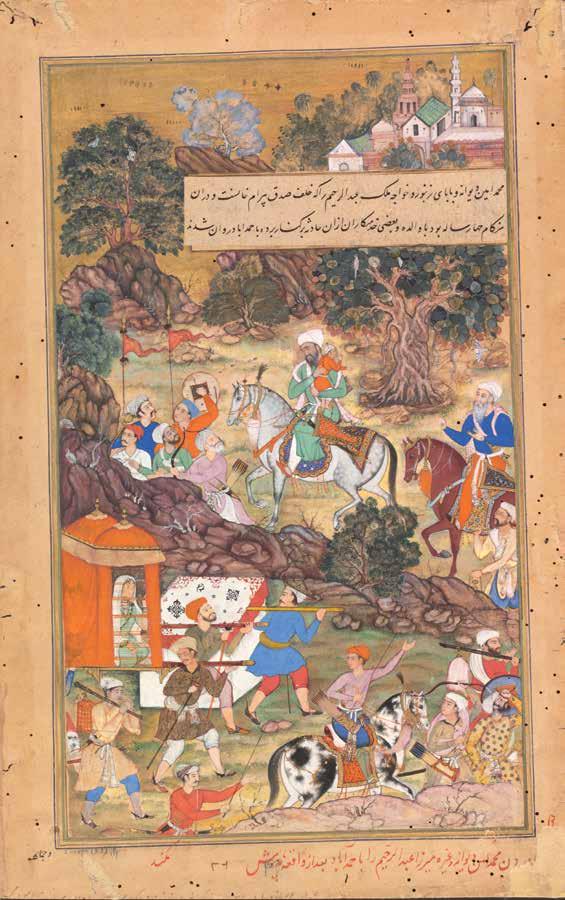 محمد امین دیوانه و بابای زنبور و خواجه ملک عبدالرحیم را که خلف صدق بیرام خانست و دران
هنکام چهار ساله بود با والده و بعضی خدمتکاران ازان حادثه برکنار برده با حمداباد روان شدند
بردن محمد امین دیوانه وغیره میرزا عبدالرحیم را باحمدآباد بعد از واقعه